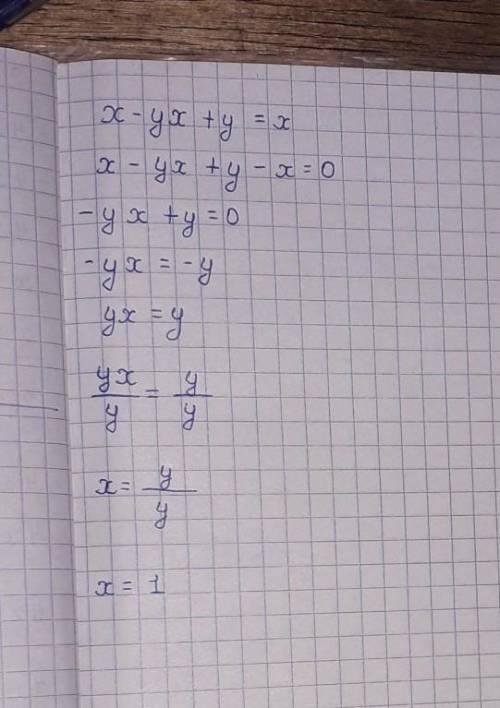 x - yx + y = x
x - yx + y - x = 0
- yx + y = 0
- yx = - y
yx = y
yx/y = y/y
x = y/y
x = 1